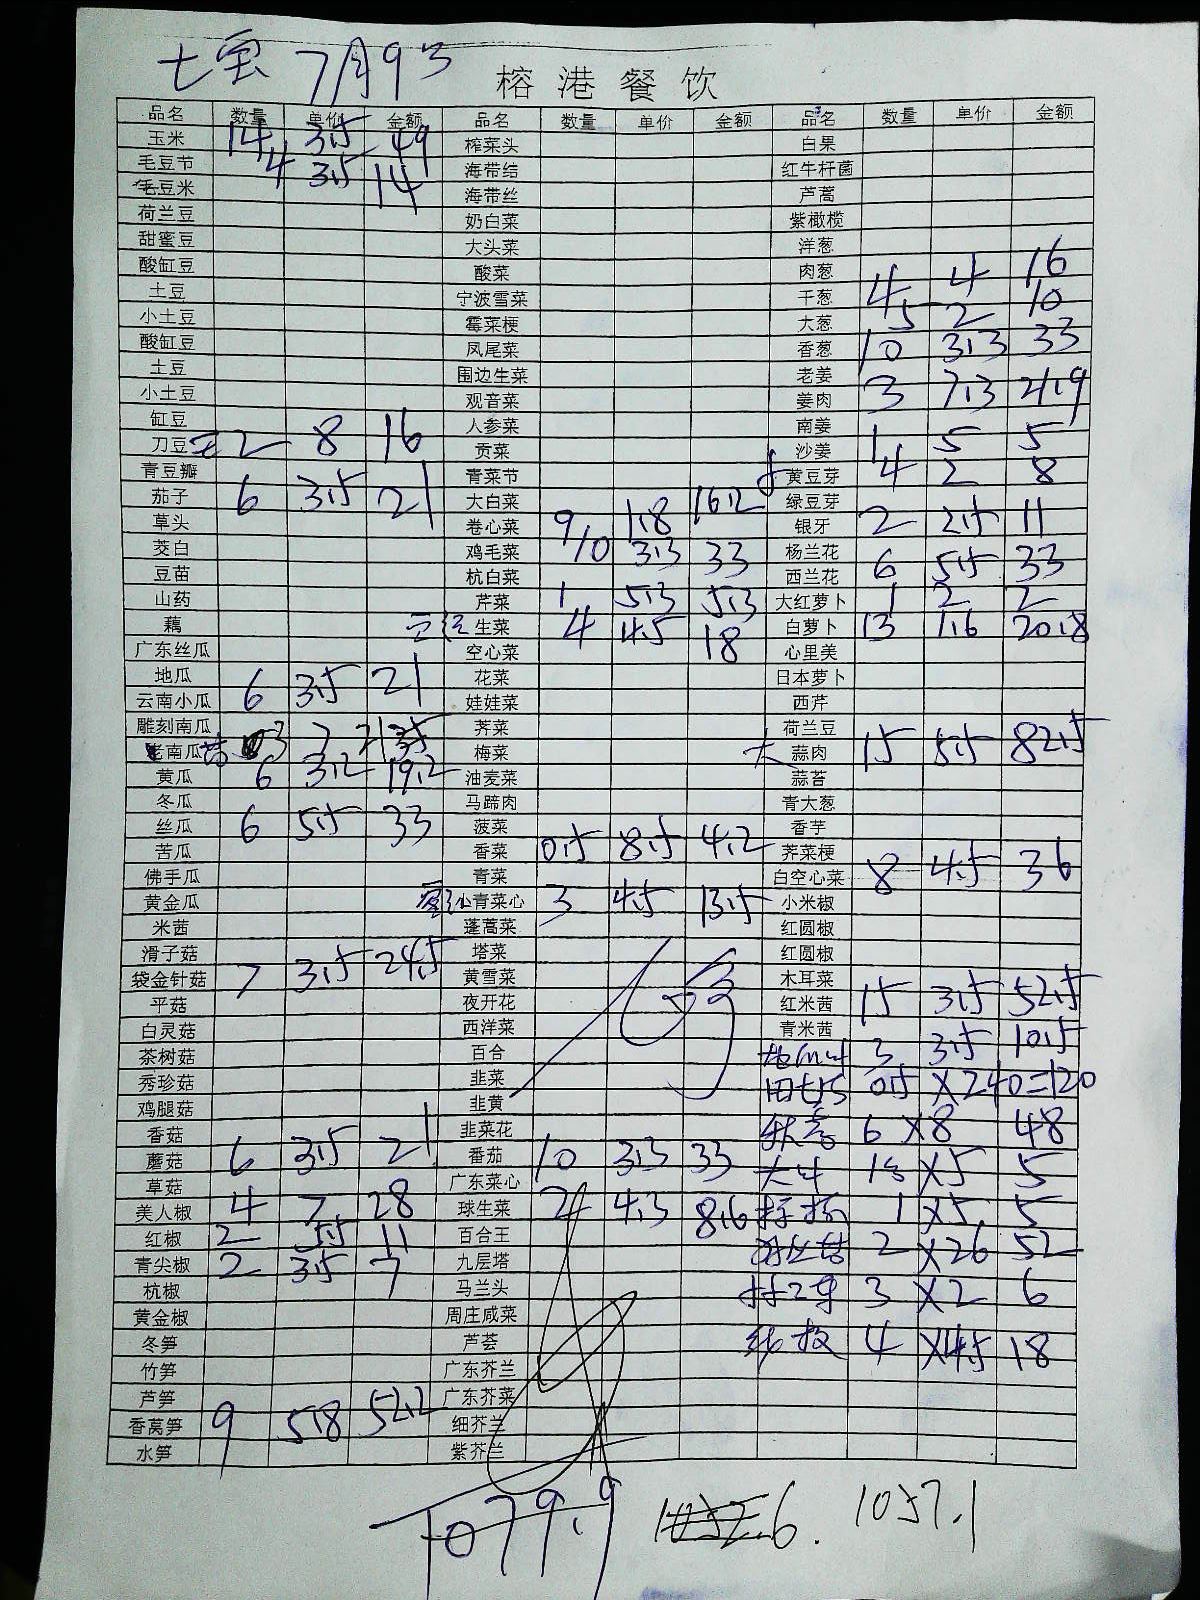 七宝 7月9号
榕港餐饮
品名 数量 单价 金额 品名 数量 单价 金额 品名 数量 单价 金额
玉米 14 3.5 49 榨菜头 白果
毛豆节 4 3.5 14 海带结 红牛杆菌
毛豆米 海带丝 芦蒿
荷兰豆 奶白菜 紫橄榄
甜蜜豆 大头菜 洋葱
酸缸豆 酸菜 肉葱 4 4 16
土豆 宁波雪菜 干葱 5 2 10
小土豆 霉菜梗 大葱
酸缸豆 凤尾菜 香葱 10 3.3 33
土豆 围边生菜 老姜
小土豆 观音菜 姜肉 3 7.3 21.9
缸豆 人参菜 南姜
刀豆 2 8 16 贡菜 沙姜 1 5 5
青豆瓣 青菜节 黄豆芽 4 2 8
茄子 6 3.5 21 大白菜 绿豆芽
草头 卷心菜 9 1.8 16.2 银牙 2 5.5 11
茭白 鸡毛菜 10 3.3 33 杨兰花
豆苗 杭白菜 西兰花 6 5.5 33
山药 芹菜 1 5.3 5.3 大红萝卜 1 2 2
藕 生菜 4 4.5 18 白萝卜 13 1.6 20.8
广东丝瓜 空心菜 心里美
地瓜 花菜 日本萝卜
云南小瓜 6 3.5 21 娃娃菜 西芹
雕刻南瓜 荠菜 荷兰豆
老南瓜 3 7 21 梅菜 大蒜肉 15 5.5 82.5
黄瓜 6 3.2 19.2 油麦菜 蒜苔
冬瓜 马蹄肉 青大葱
丝瓜 6 5.5 33 菠菜 香芋
苦瓜 香菜 0.5 8.5 4.2 荠菜梗
佛手瓜 青菜 白空心菜 8 4.5 36
黄金瓜 小青菜心 3 4.5 13.5 小米椒
米茜 蓬蒿菜 红圆椒
滑子菇 塔菜 红圆椒
袋金针菇 7 3.5 24.5 黄雪菜 木耳菜
平菇 夜开花 红米茜 15 3.5 52.5
白灵菇 西洋菜 青米茜
茶树菇 百合 3 3.5 10.5
秀珍菇 韭菜 0.5 ×240=120
鸡腿菇 韭黄 6 ×8 48
香菇 韭菜花 ×5 5
蘑菇 6 3.5 21 番茄 10 3.3 33
草菇 广东菜心 1 ×5 5
美人椒 4 7 28 球生菜 2 4.3 8.6
红椒 2 5.5 11 百合王 2 ×26 52
青尖椒 2 3.5 7 九层塔
杭椒 马兰头 3 ×2 6
黄金椒 周庄咸菜
冬笋 芦荟 4 ×4.5 18
竹笋 广东芥兰
芦笋 广东芥菜
香莴笋 9 5.8 52.2 细芥兰
水笋 紫芥兰
1079.9 1052.6. 1057.1